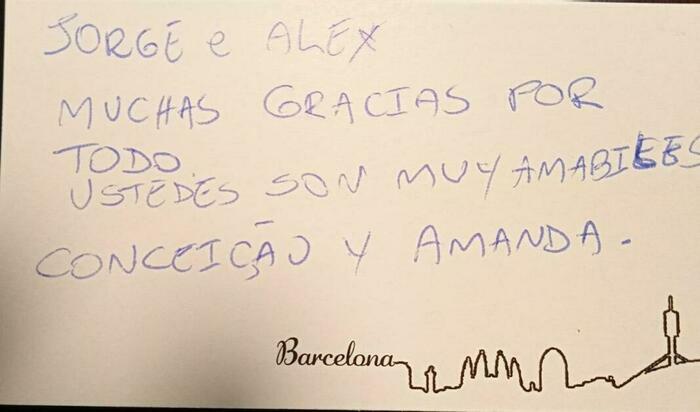 JORGE e ALEX
MUCHAS GRACIAS POR
TODO.
USTEDES SON MUY AMABILES
CONCEIÇÃO Y AMANDA.
Barcelona